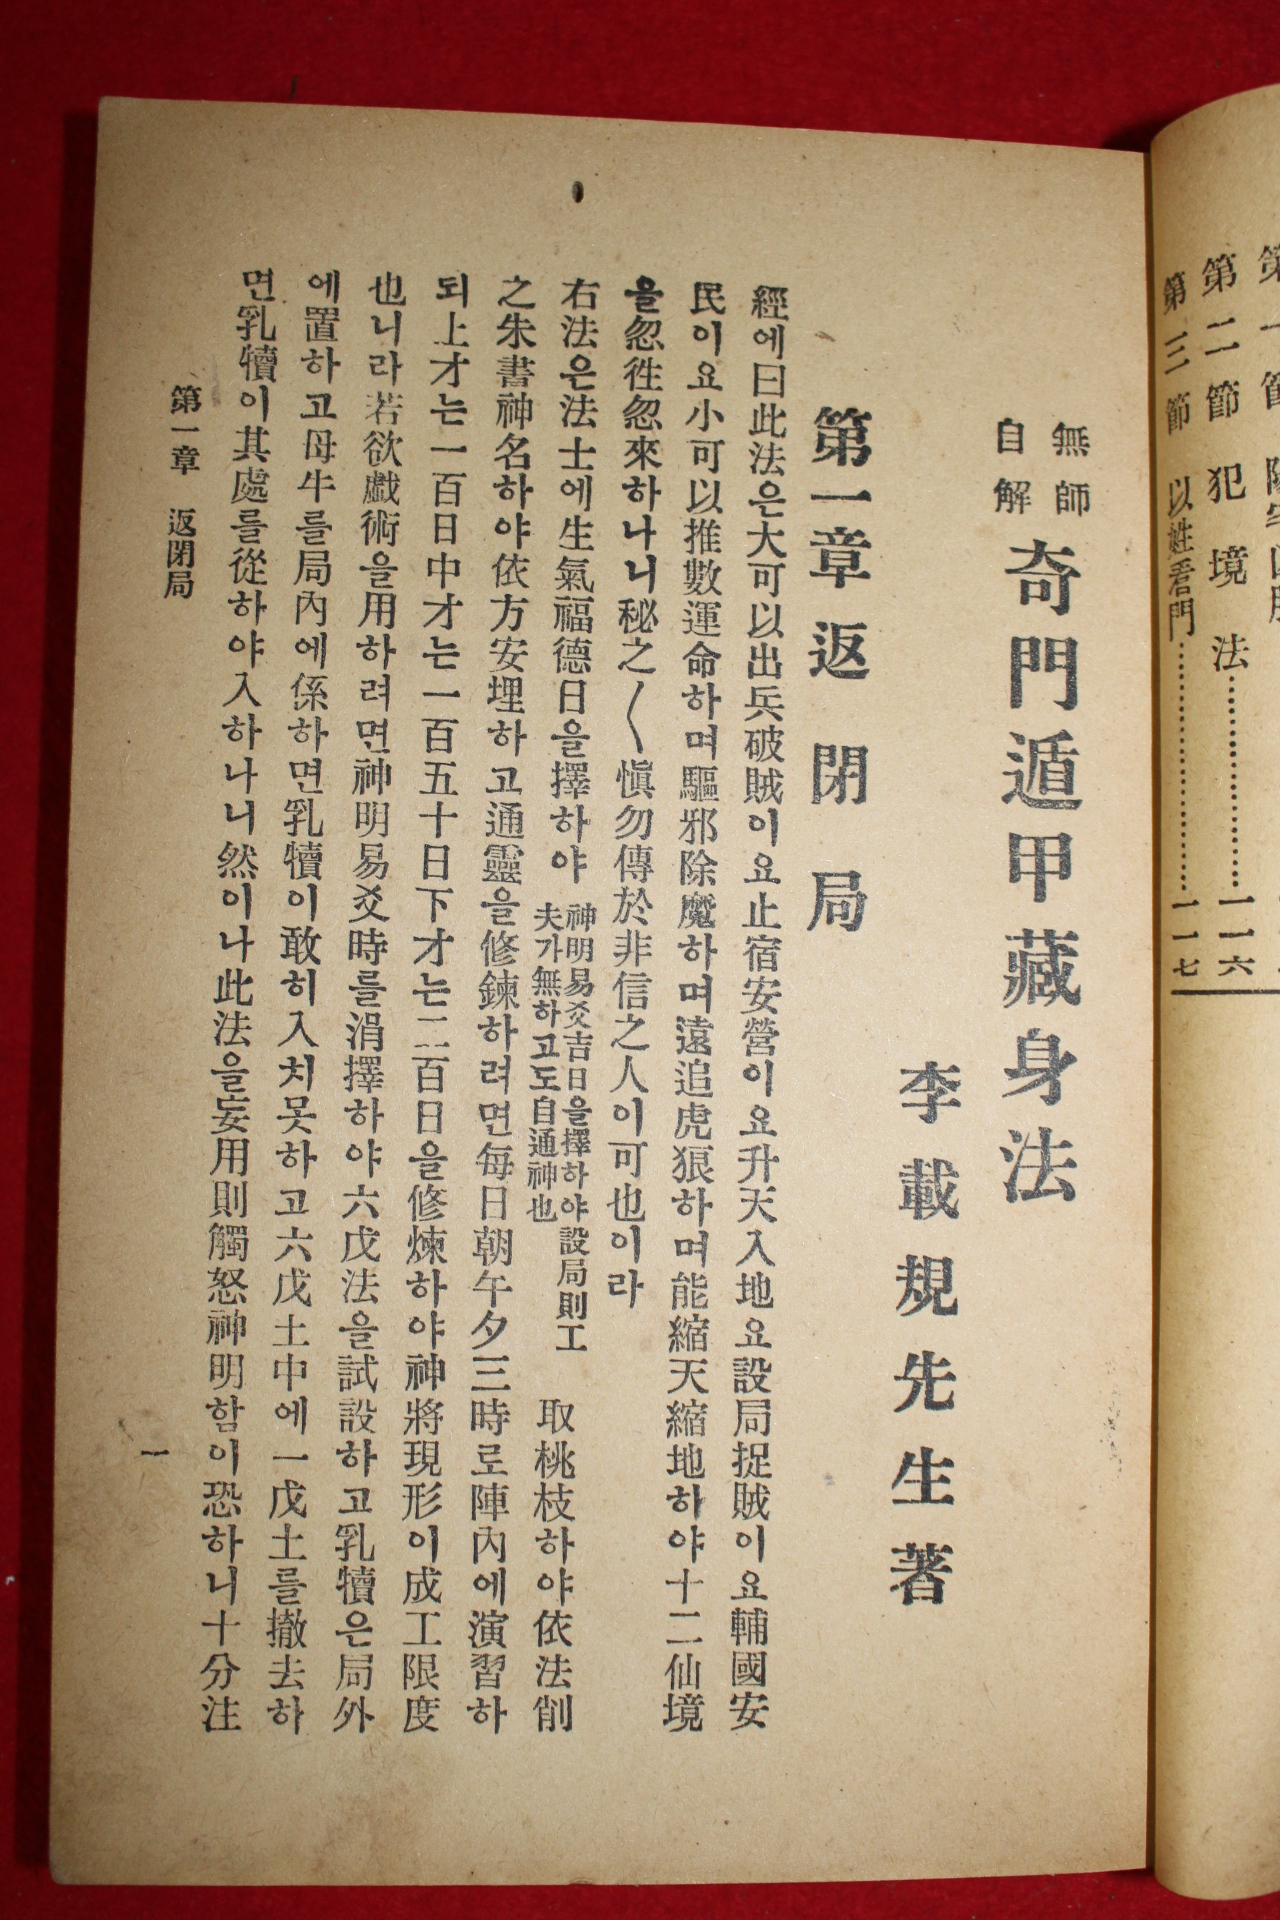 第二節 犯境法……………一一六
第三節 以姓㖈門……………一一七
無師
自解
奇門遁甲藏身法
李載規先生著
第一章 返閉局
經에曰此法은大可以出兵破賊이요止宿安營이요升天入地요設局捉賊이요輔國安
民이요小可以推數運命하며驅邪除魔하며遠追虎狼하며能縮天縮地하야十二仙境
을忽徃忽來하나니秘之〱愼勿傳於非信之人이可也이라
右法은法士에生氣福德日을擇하야
神明易爻吉日을擇하야設局則工
夫가無하고도自通神也
取桃枝하야依法削
之朱書神名하야依方安埋하고通靈을修鍊하려면每日朝午夕三時로陣內에演習하
되上才는一百日中才는一百五十日下才는二百日을修煉하야神將現形이成工限度
也니라若欲戱術을用하려면神明易爻時를涓擇하야六戊法을試設하고乳犢은局外
에置하고母牛를局內에係하면乳犢이敢히入치못하고六戊土中에一戊土를撤去하
면乳犢이其處를從하야入하나니然이나此法을妄用則觸怒神明함이恐하니十分注
第一章 返閉局
一